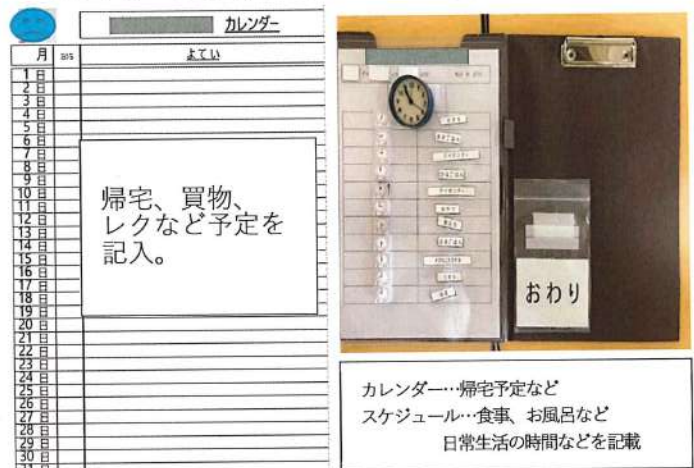 カレンダー
月
よてい
1日
2日
3日
4日
5日
6日
7日
8日
9日
10日
11日
12日
13日
14日
15日
16日
17日
18日
19日
20日
21日
22日
23日
24日
25日
26日
27日
28日
29日
30日
帰宅、買物、
レクなど予定を
記入。
おわり
カレンダー…帰宅予定など
スケジュール…食事、お風呂など
日常生活の時間などを記載